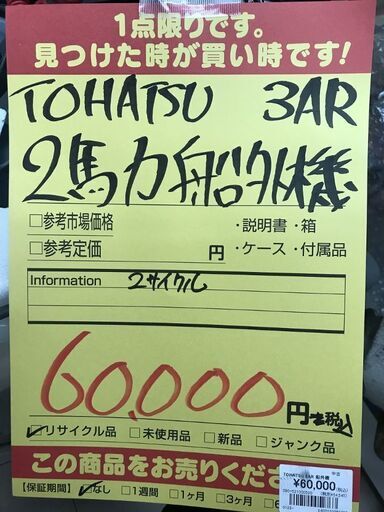 1点限りです。
見つけた時が買い時です!
TOHATSU 3AR
2馬力船外機
□参考市場価格
・説明書・箱
□参考定価
円
・ケース・付属品
Information
2サイクル
60,000円税込
リサイクル品 □未使用品 □新品 □ジャンク品
この商品をお売りくださ
【保証期間】 なし □1週間 □1ヶ月 □3ヶ月 □6
TOHATSU 3AR 船外機
中古
¥60,000(税込)